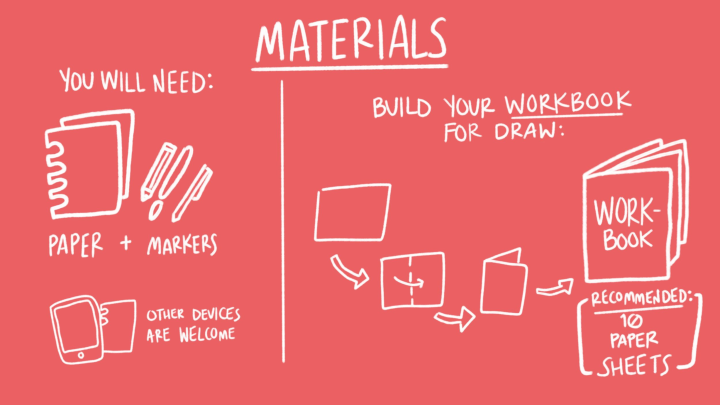 MATERIALS
YOU WILL NEED:
PAPER + MARKERS
OTHER DEVICES
ARE WELCOME
BUILD YOUR WORKBOOK
FOR DRAW:
WORK-
BOOK
RECOMMENDED:
10
PAPER
SHEETS